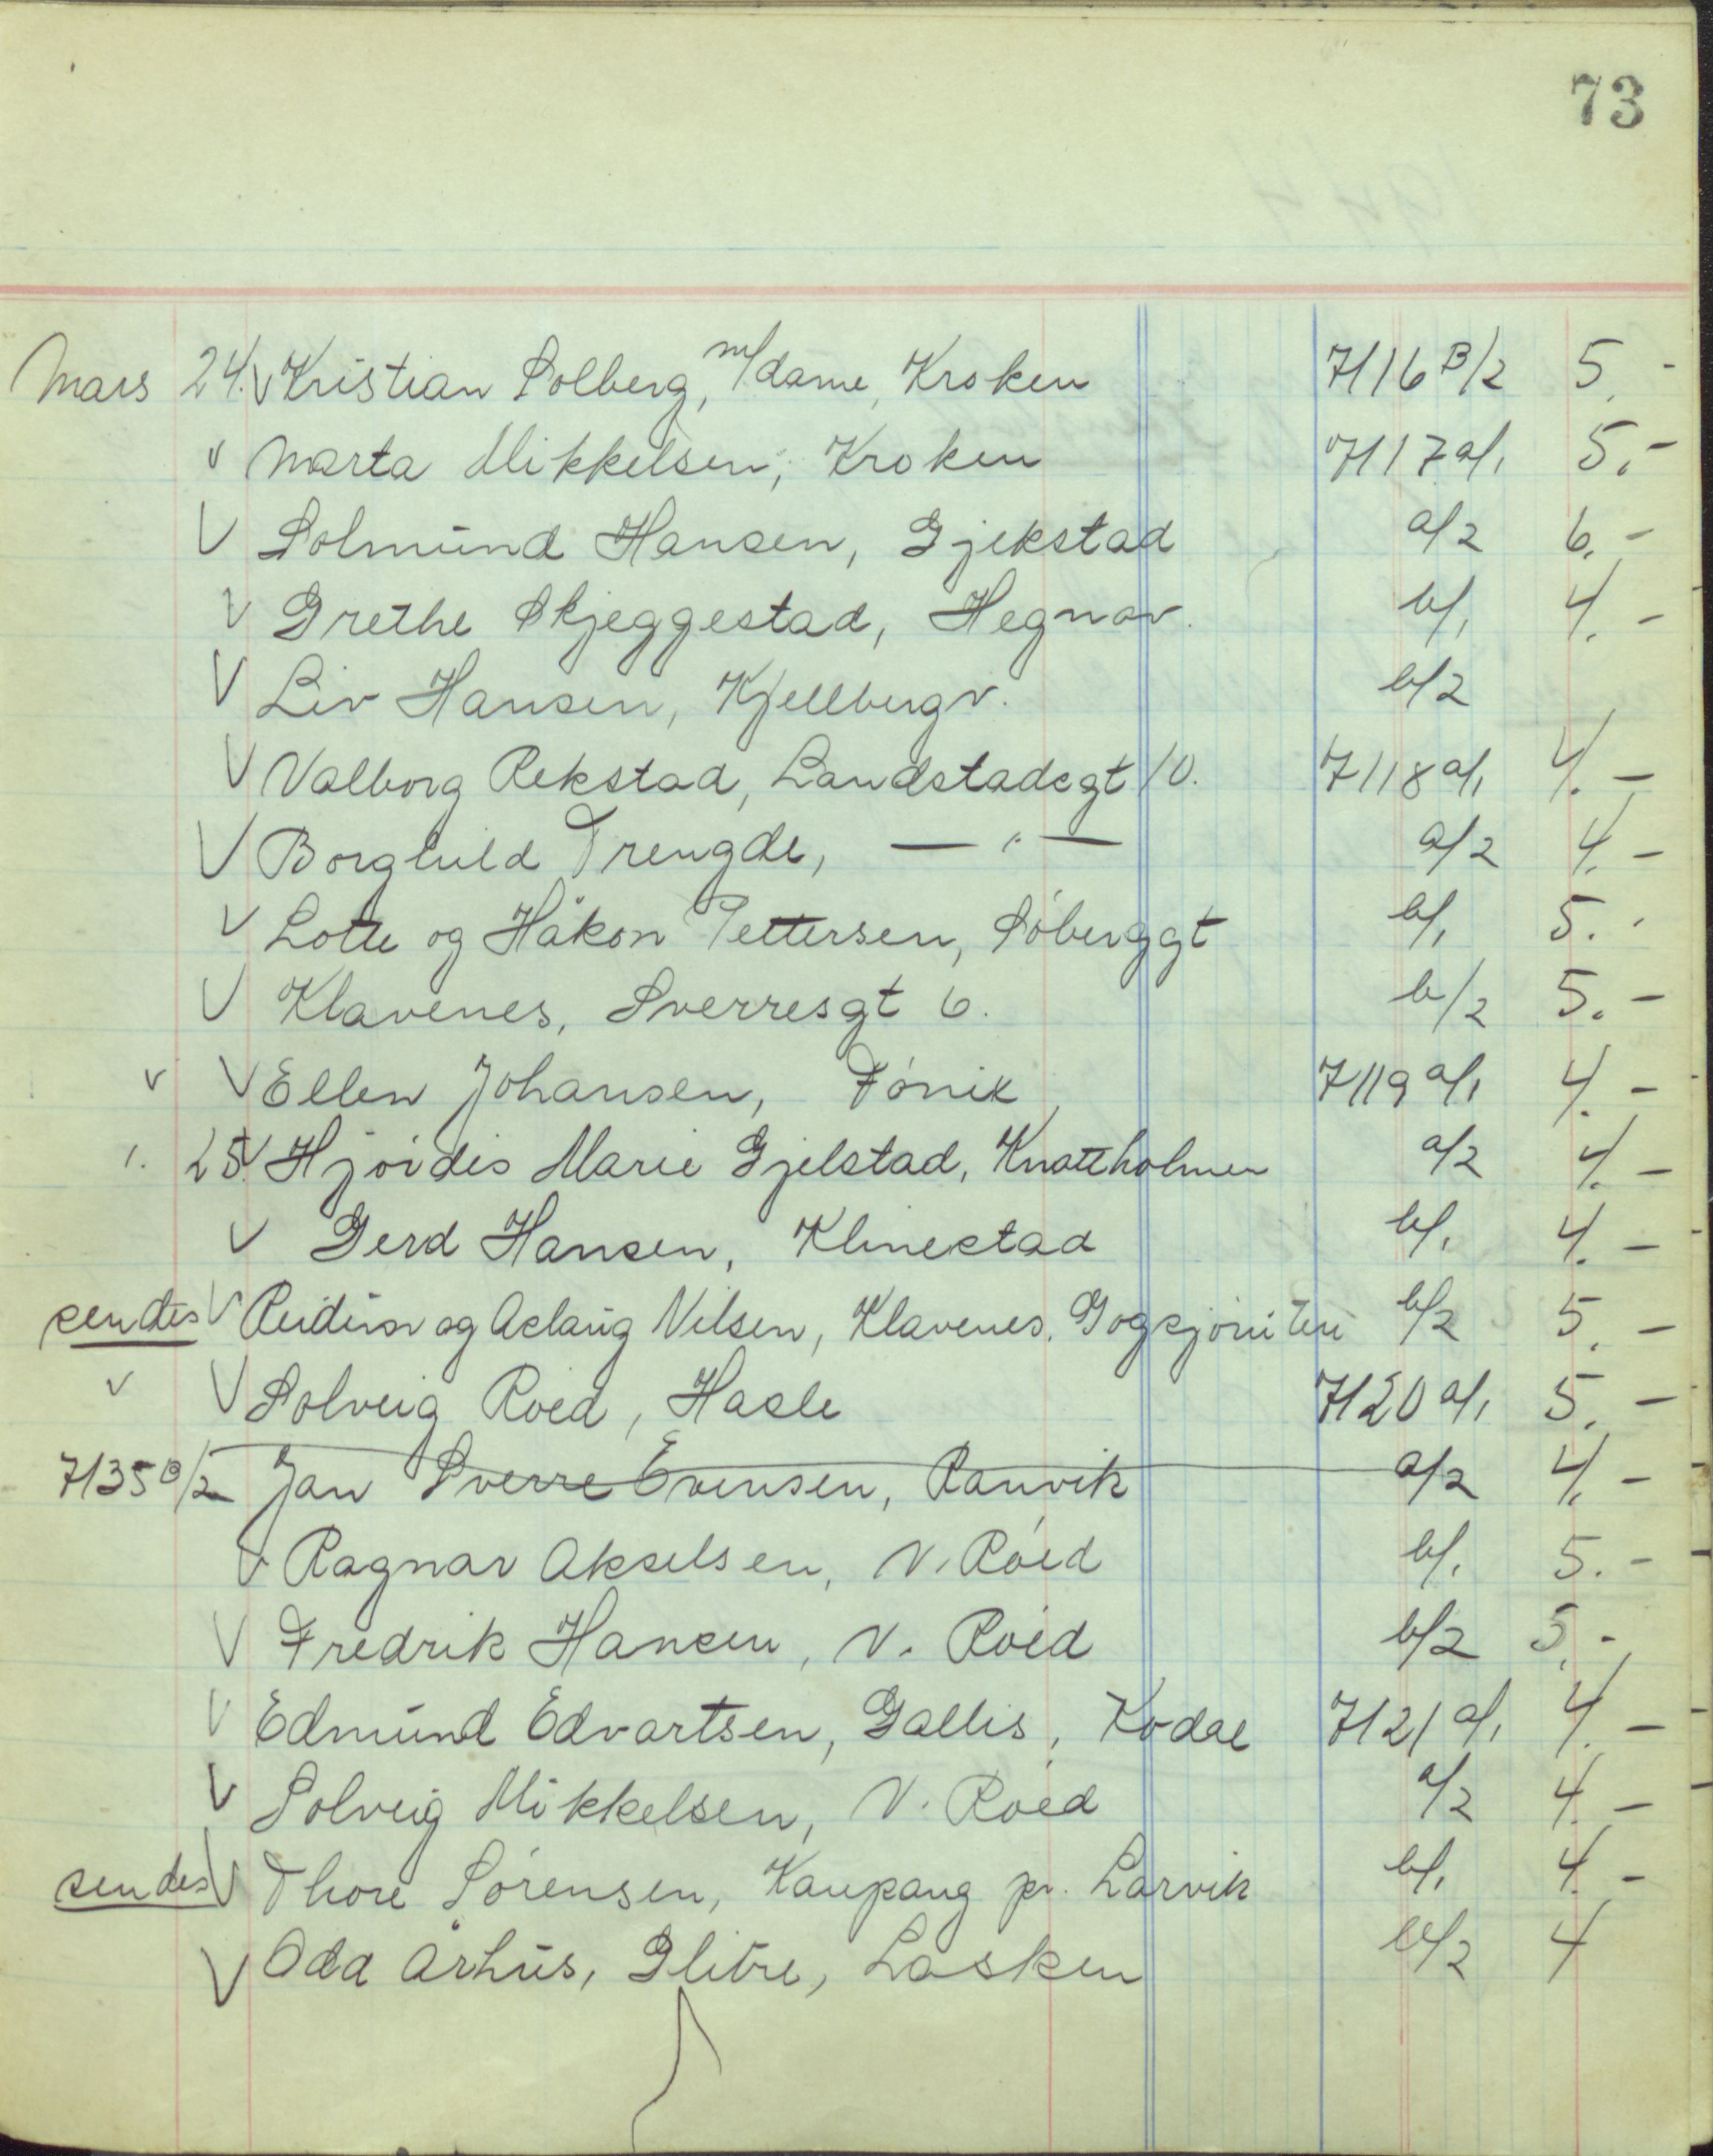 73
Mars 24. V Kristian Solberg, m/dame, Kroken 7116 B/2 5.-
V Marta Mikkelsen, Kroken 7117 a/1 5.-
V Solmund Hansen, Gjekstad a/2 6.-
V Grethe Skjeggestad, Hegnav. b/1 4.-
V Liv Hansen, Kjellbergv. b/2
V Valborg Rekstad, Landstadsgt 10. 7118 a/1 4.-
V Borghild Trengde, — " — a/2 4.-
V Lotte og Håkon Pettersen, Söberggt b/1 5.-
V Klavenes, Sverresgt 6. b/2 5.-
v V Ellen Johansen, Fönik 7119 a/1 4.-
25. V Hjördis Marie Gjelstad, Knattholmen a/2 4.-
V Gerd Hansen, Klinestad b/1 4.-
sendes V Reidun og Aslaug Nilsen, Klavenes, b/2 5.-
v V Solveig Röed, Hasle 7120 a/1 5.-
7135 B/2 Jan Sverre Evensen, Ranvik a/2 4.-
V Ragnar Akselsen, N. Röed b/1 5.-
V Fredrik Hansen, N. Röed b/2 5.-
V Edmund Edvartsen, Gallis, Kodal 7121 a/1 4.-
V Solveig Mikkelsen, N. Röed a/2 4.-
sendes V Thore Sörensen, Kaupang pr. Larvik b/1 4.-
V Oda Århus, Glitre, Lasken b/2 4